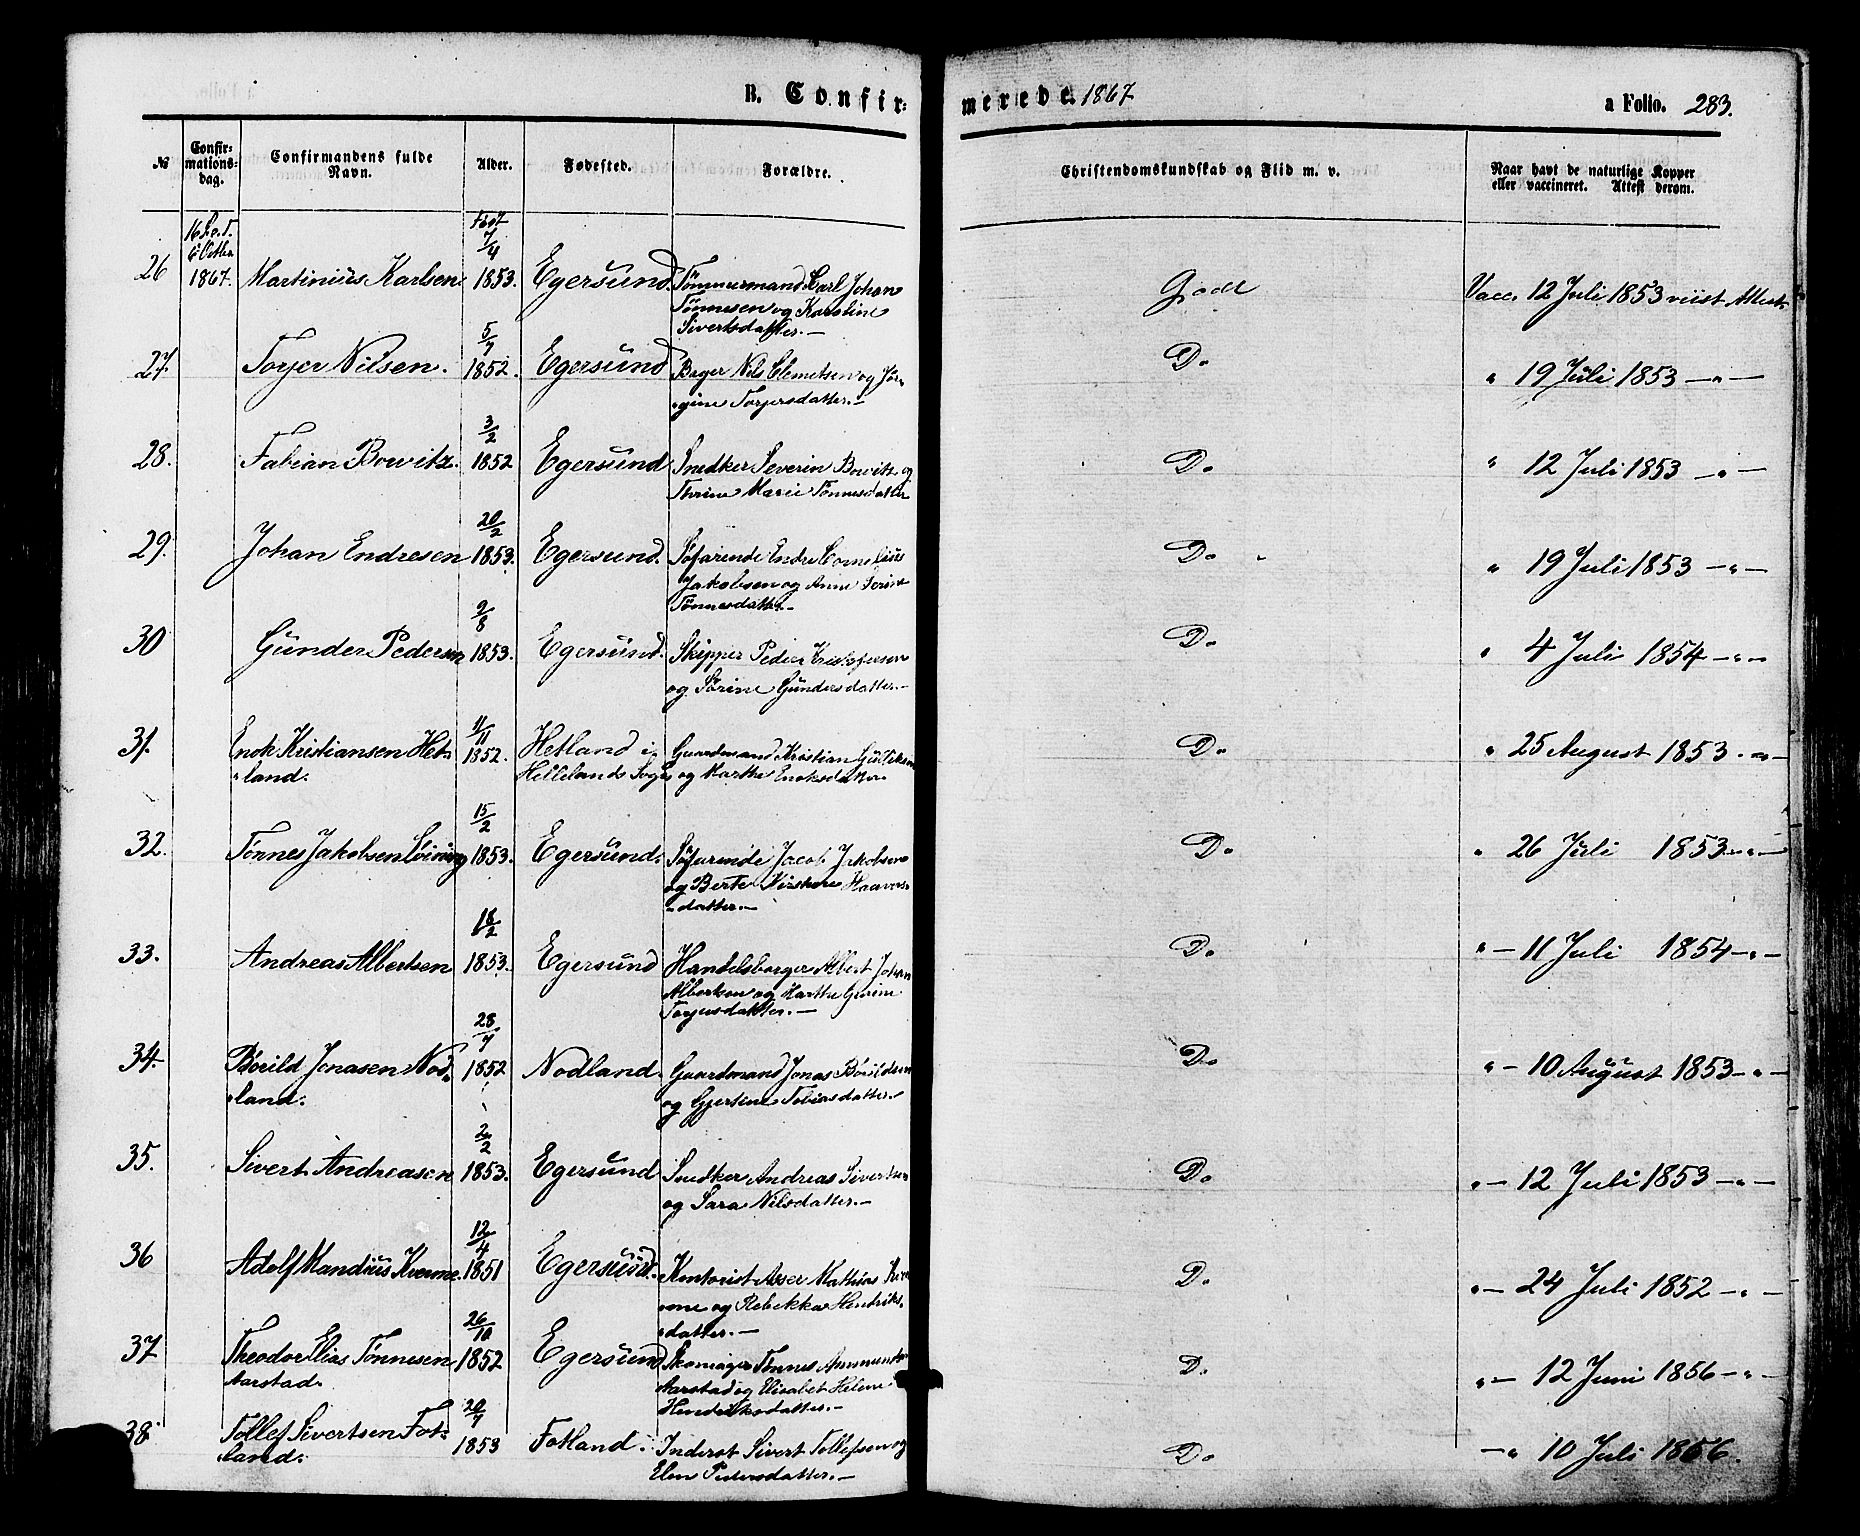 B. Confir-
merede. 1867
a Folio. 283.
№
Confir-
mations-
dag.
Confirmandens fulde
Navn.
Alder.
Fødested.
Forældre.
Christendomskundskab og Flid m. v.
Naar havt de naturlige Kopper
eller vaccineret. Attest derom.
26
1867.
7/4
Martinius Karlsen
1853.
Egersund.
Tømmermand Carl Johan
Tønnesen og Karstine
Sivertsdatter.—
God
Vacc. 12 Juli 1853 viist Attest
27.
Torjer Nilsen.
5/7
1852.
Egersund
Bager Nils Clemetsen og Jør-
gine Torjersdatter.—
Do
" 19 Juli 1853 —"—
28.
Fabian Bowitz.
3/2
1852
Egersund
Snedker Severin Bowitz og
Thrine Marie Tønnesdatter
Do
" 12 Juli 1853 —"—
29.
Johan Endresen
20/2
1853.
Egersund.
Søfarende Endre Cornelius
Jakobsen og Anne Torine
Tønnesdatter—
Do
" 19 Juli 1853 —"—
30
Gunder Pedersen
2/8
1853.
Egersund.
Skipper Peder Kristofersen
og Sørine Gundersdatter.—
Do
" 4 Juli 1854 —"—
31.
Enok Kristiansen Het-
land.
11/11
1852.
Hetland i
Hellelands Sogn
Gaardmand Kristian
og Marthe Enoksdatter
Do
" 25 August 1853. —"—
32.
Tønnes Jakobsen
15/2
1853.
Egersund.
Søfarende Jacob Jakobsen
og Berte Kirstine Haavers-
datter.—
Do
" 26 Juli 1853 —"—
33.
Andreas Albertsen
18/2
1853.
Egersund
Handelsborger Albert Johan
Albertsen og Marthe Gurine
Torjersdatter.—
Do
" — 11 Juli 1854 —"—
34.
Bøvild Jonasen Nod-
land.
28/7
1852
Nodland.
Gaardmand Jonas
og Gjertine Tobiasdatter.—
Do
" — 10 August 1853 —"—
35.
Sivert Andreasen
2/2
1853.
Egersund
Snedker Andreas Sivertsen
og Sara Nilsdatter.—
Do
" — 12 Juli 1853 —"—
36
Adolf Mandius Kverme.
12/4
1851
Egersund.
Kontorist Asser Mathias
og Rebekka Hendriks-
datter.—
Do
" — 24 Juli 1852 —"—
37
Theodor Elias Tønnesen
Aarstad.
26/10
1852
Egersund
Skomager Tønnes Ammundsen
Aarstad og Elisabet Helene
Hendriksdatter.—
Do
" — 12 Juni 1856 —"—
38
Tollef Sivertsen Fot-
land.
20/7
1853
Fotland.
Inderst Sivert Tollefsen og
Elen Pedersdatter.—
Do
—" 10 Juli 1866.